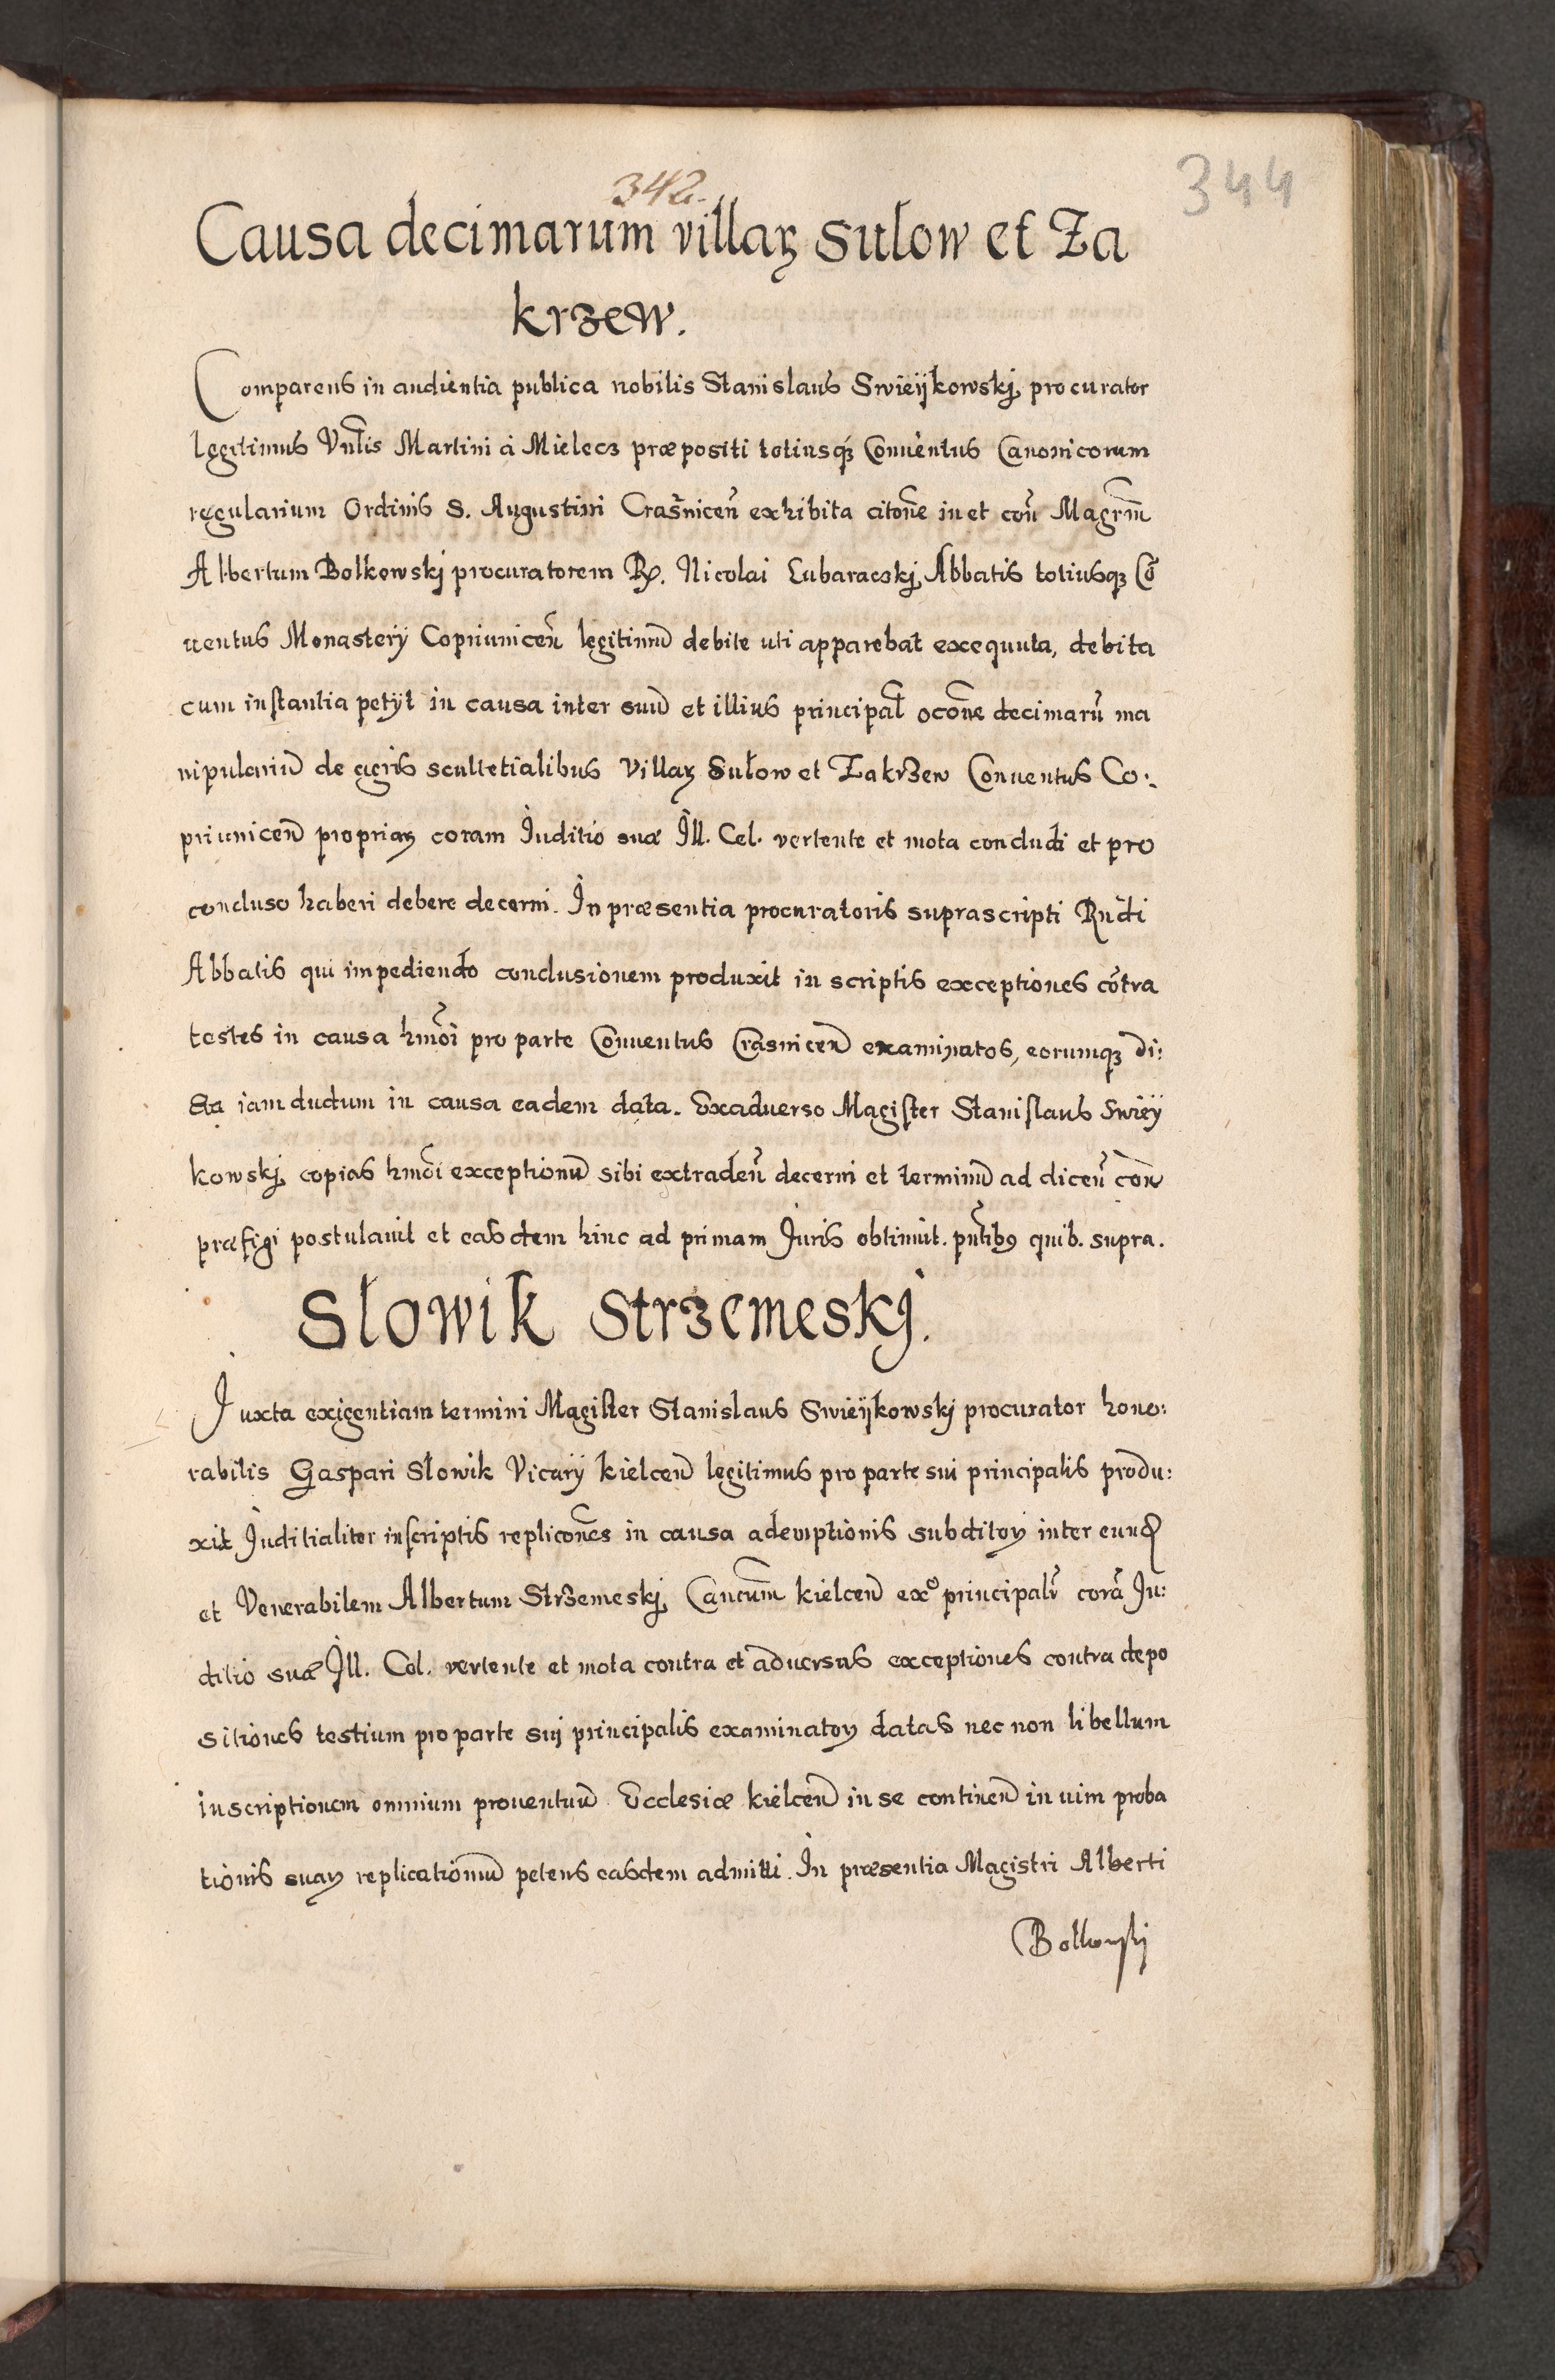 344
342.
Causa decimarum villaꝝ Sulow et Za
krzew.
Comparens in audientia publica nobilis Stanislaus Swieijkowskj procurator
legitimus Vnlis Martini à Mielecz præpositi totiusqꝫ Conuentus Canonicorum
regularium Ordinis S. Augustini Crasnicen̄ exhibita citōne in et con̄ Magrm̄
Albertum Bolkowskj procuratorem R. Nicolai Lubaraczkj Abbatis totiusqꝫ Cō
uentus Monasterij Copriunicen̄ legitimū debite uti apparebat exequuta, debita
cum instantia petijt in causa inter suū et illius principal̄ occōne decimarū ma
nipulariū de agris scultetialibus Villaꝝ Sułow et Zakrzew Conuentus Co:
priunicen̄ propriaꝝ coram Juditio suæ Ill. Cel. vertente et mota concludi et pro
concluso haberi debere decerni. In præsentia procuratoris suprascripti Rndi
Abbatis qui impediendo conclusionem produxit in scriptis exceptiones cōtra
testes in causa hmōi pro parte Conuentus Crasnicen̄ examinatos, eorumqꝫ di:
cta iamdudum in causa eadem data. Exaduerso Magister Stanislaus Swieij
kowskj copias hmōi exceptionū sibi extraden̄ decerni et terminū ad dicen̄ con̄
præfigi postulauit et easdem hinc ad primam Juris obtinuit. pn̄tibꝰ quib. supra.
Slowik Strzemeskj.
Juxta exigentiam termini Magister Stanislaus Swieijkowskj procurator hono:
rabilis Gaspari Słowik Vicarij kielcen̄ legitimus pro parte sui principalis produ:
xit Juditialiter in scriptis replicōnes in causa ademptionis subditoꝝ inter eund
et Venerabilem Albertum Strzemeskj Cancum̄ kielcen̄ exº principalr̄ corā Ju:
ditio suæ Ill. Cel. vertente et mota contra et aduersus exceptiones contra depo
sitiones testium pro parte suj principalis examinatoꝝ datas nec non libellum
inscriptionem omnium prouentuū Ecclesiæ kielcen̄ in se continen̄ in uim proba
tionis suaꝝ replicationū petens easdem admitti. In præsentia Magistri Alberti
Bolkowskj